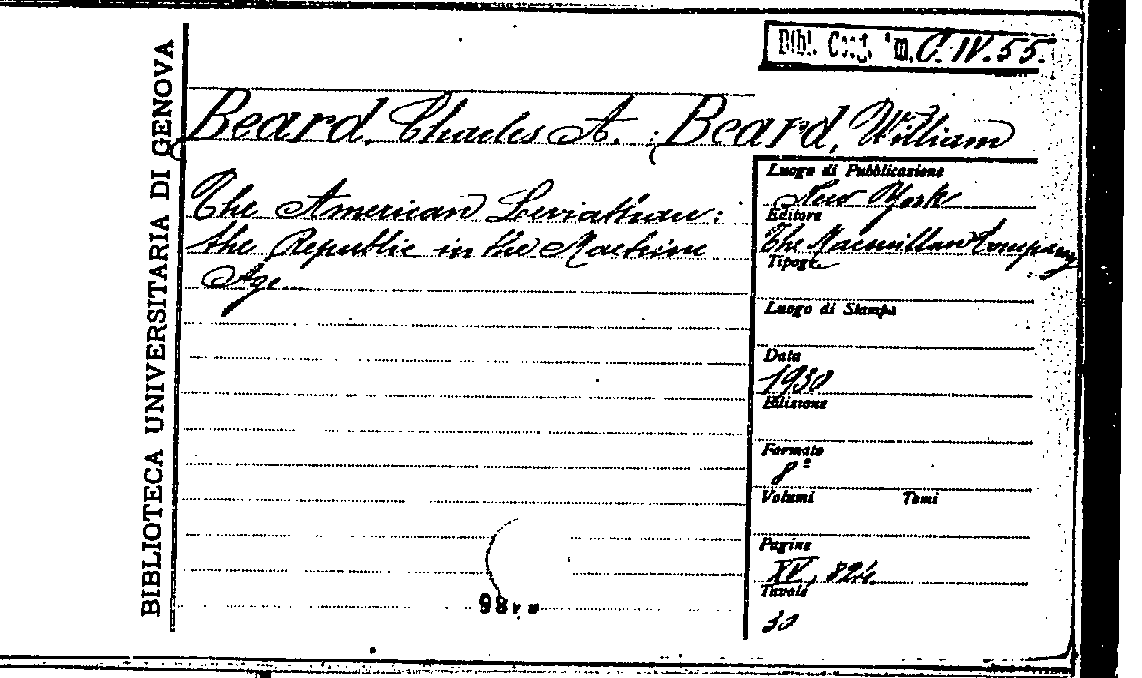 BIBLIOTECA UNIVERSITARIA DI GENOVA
Bibl. C. IV. 55.
Beard, Charles A. ; Beard, William
The American Leviathan:
the Republic in the Machine
Age
Luogo di Pubblicazione
New York
Editore
The Macmillan Company
Tipogr.
Luogo di Stampa
Data
1930
Edizione
Formato
8º
Volumi Tomi
Pagine
XV, 824
Tavole
30